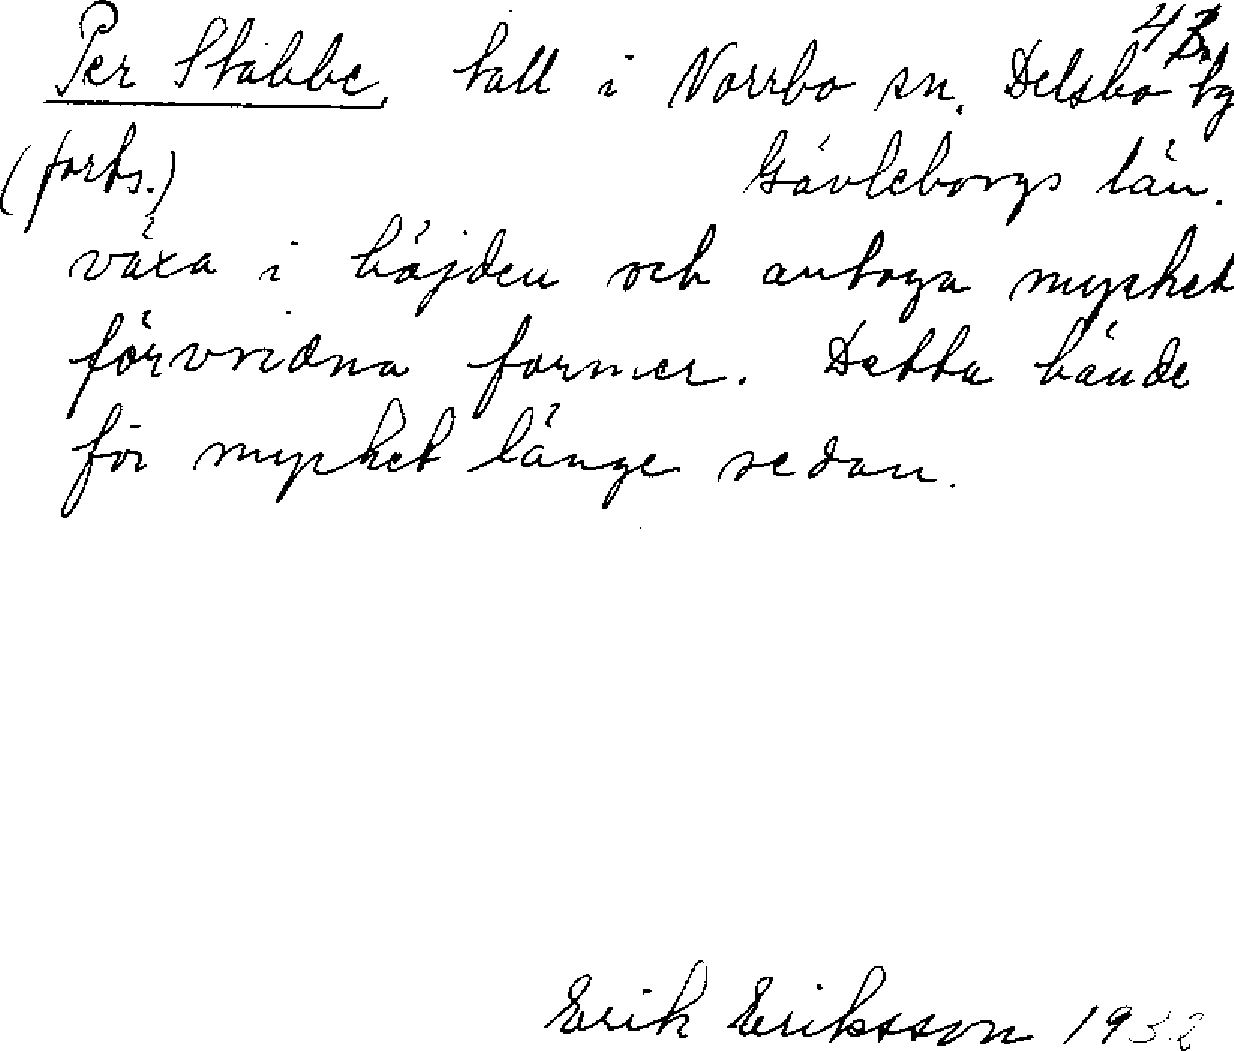 Per Stabbe, tall i Norrbo sn. Delsbo by
(forts.) Gävleborgs län.
växa i höjden och antoga mycket
förvridna former. Detta hände
för mycket länge sedan.
Erik Eriksson 1932